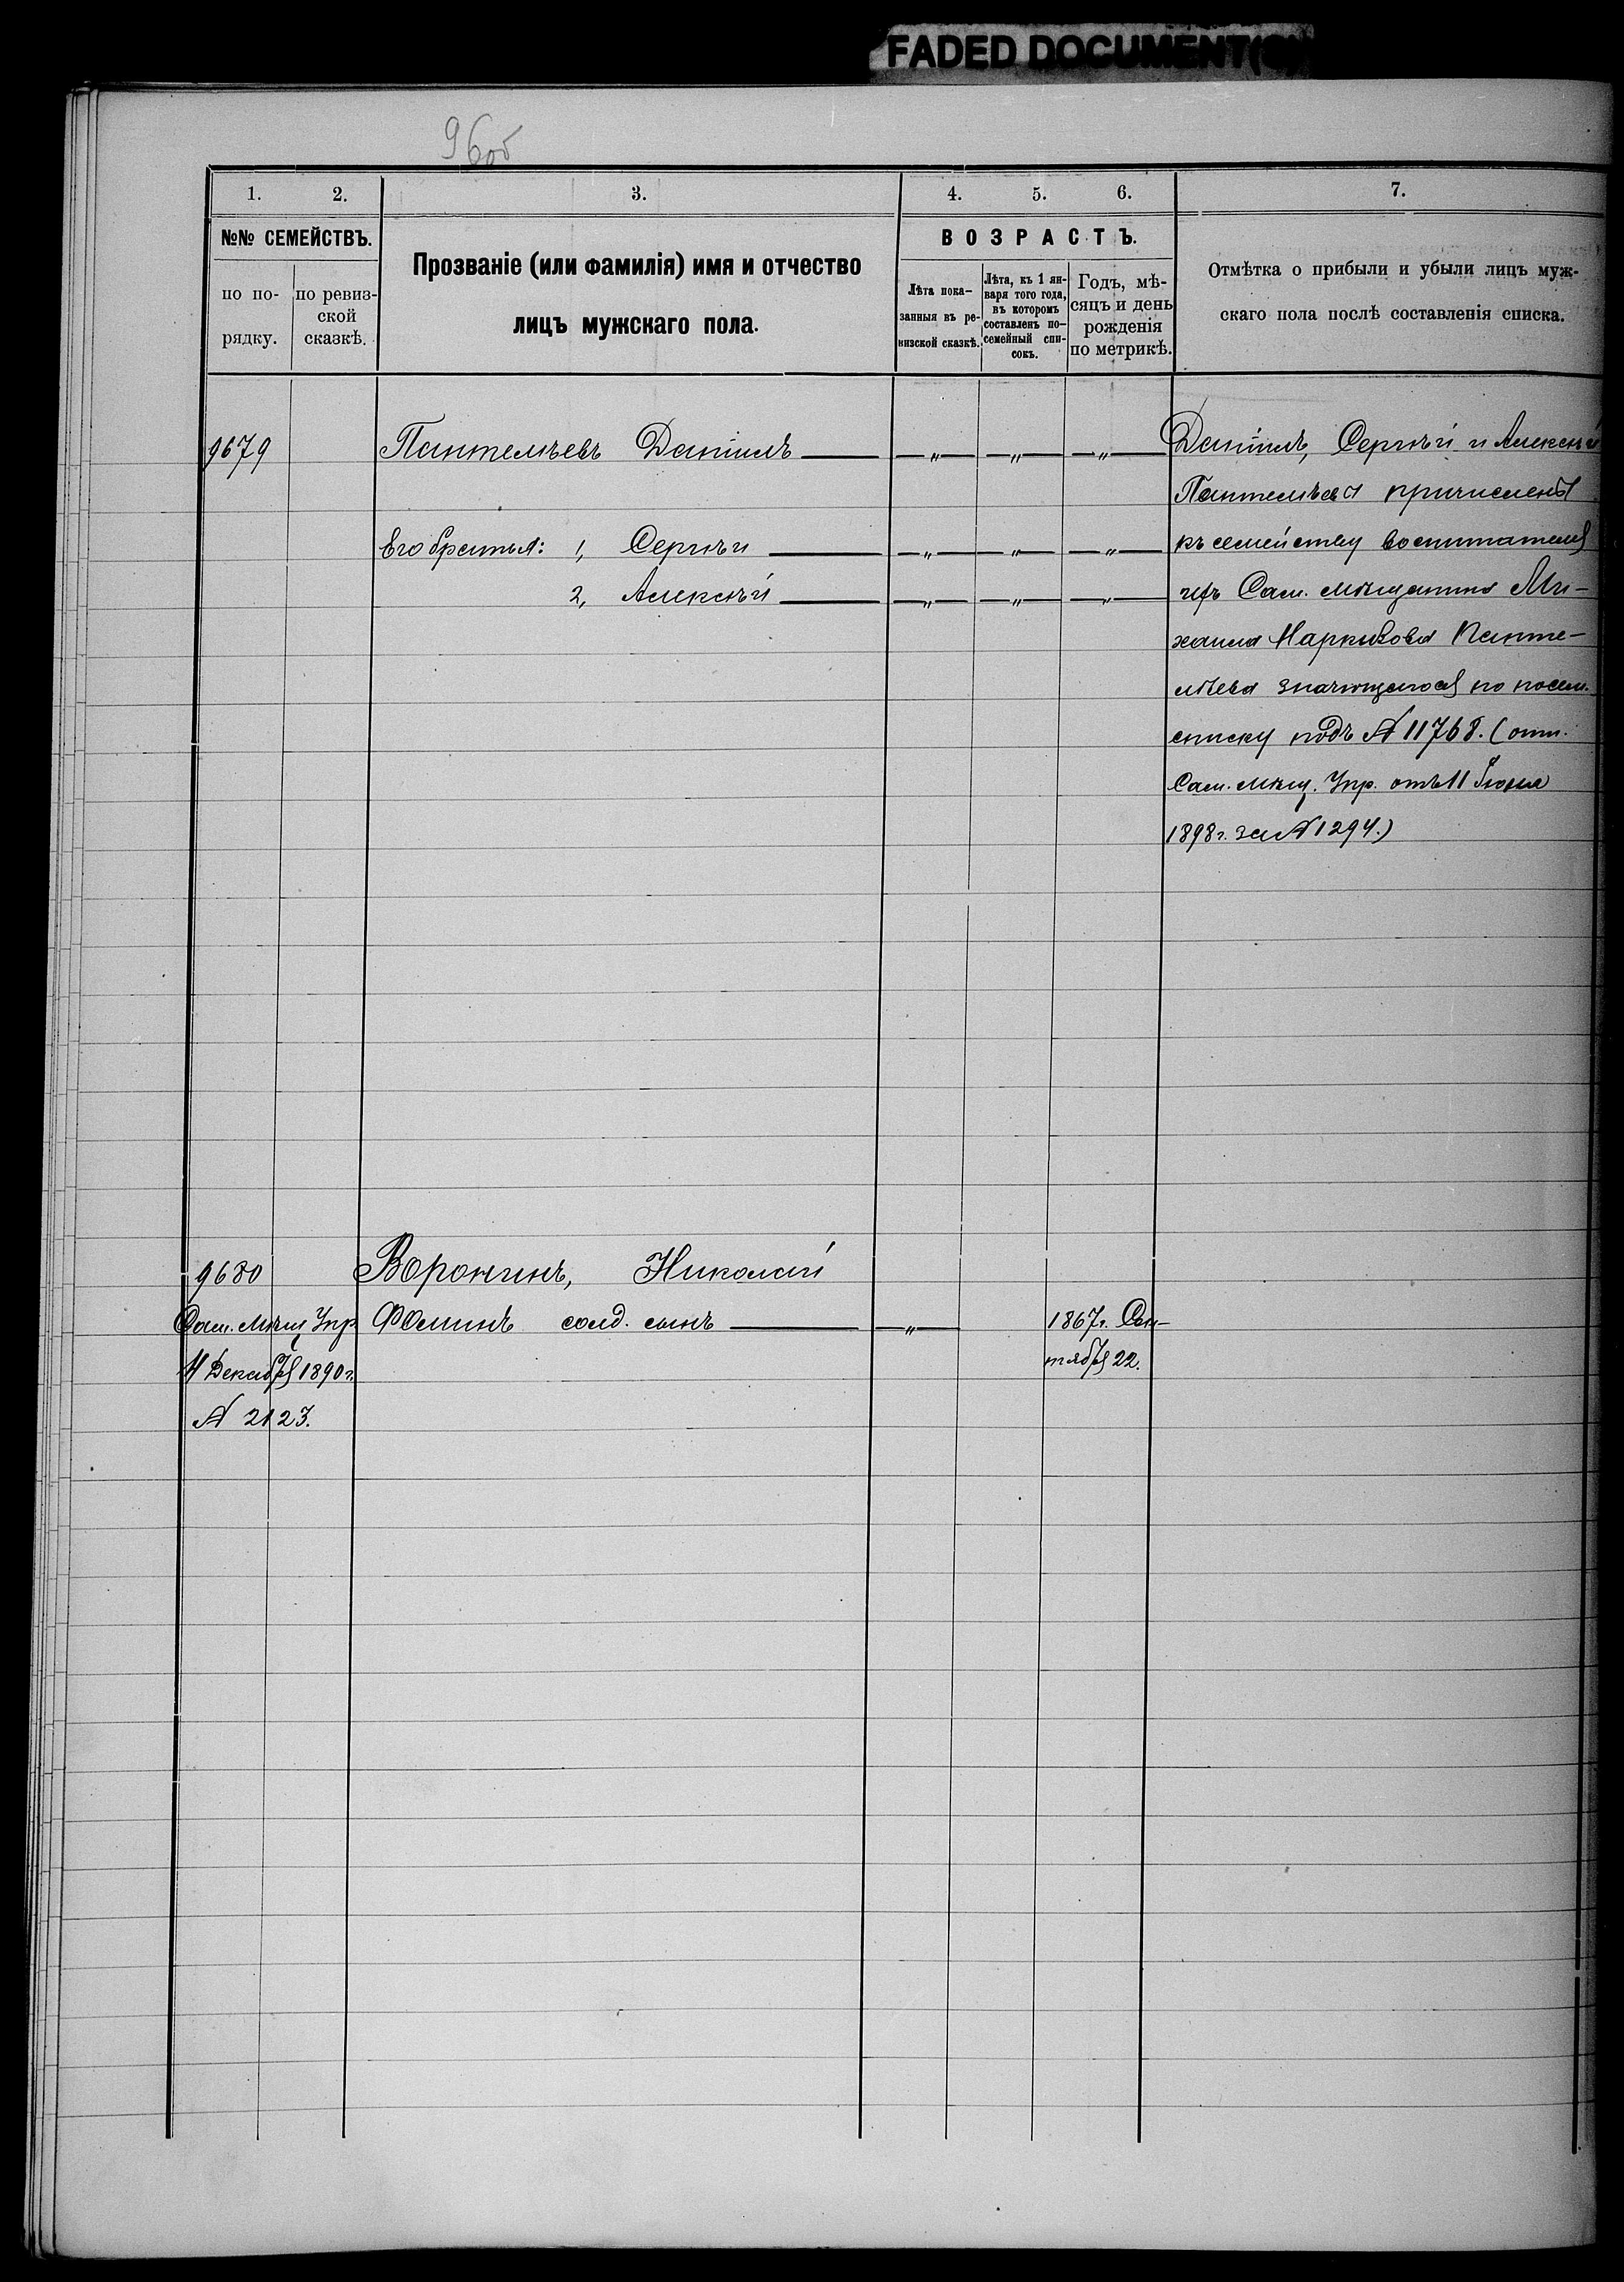 FADED DOCUMENT(S)
96об
1. 2. 3. 4. 5. 6. 7.
№№ СЕМЕЙСТВЪ.
по по-
рядку.
по ревиз-
ской
сказкѣ.
Прозваніе (или фамилія) имя и отчество
лицъ мужскаго пола.
ВОЗРАСТЪ.
Лѣта пока-
занныя въ ре-
визской сказкѣ.
Лѣта, къ 1 ян-
варя того года,
въ которомъ
составленъ по-
семейный спи-
сокъ.
Годъ, мѣ-
сяцъ и день
рожденія
по метрикѣ.
Отмѣтка о прибыли и убыли лицъ муж-
скаго пола послѣ составленія списка.
9679 Пантелѣевъ Даніилъ — „ — „ — „ —
Его братья: 1, Сергѣй — „ — „ — „ —
2, Алексѣй — „ — „ — „ —
Даніилъ, Сергѣй и Алексѣй
Пантелѣевы причислены
къ семейству воспитателя
ихъ Сам. мѣщанина Ми-
хаила Маркилова Панте-
лѣева значущагося по посем.
списку подъ № 11768. (отн.
Сам. Мѣщ. Упр. отъ 11 Іюня
1898 г. за № 1294.)
9680 Воронинъ, Николай
Сам. Мѣщ Упр Фоминъ солд. сынъ — „ — 1867 г. Сен-
4 Декабря 1890 г. тября 22.
№ 2123.